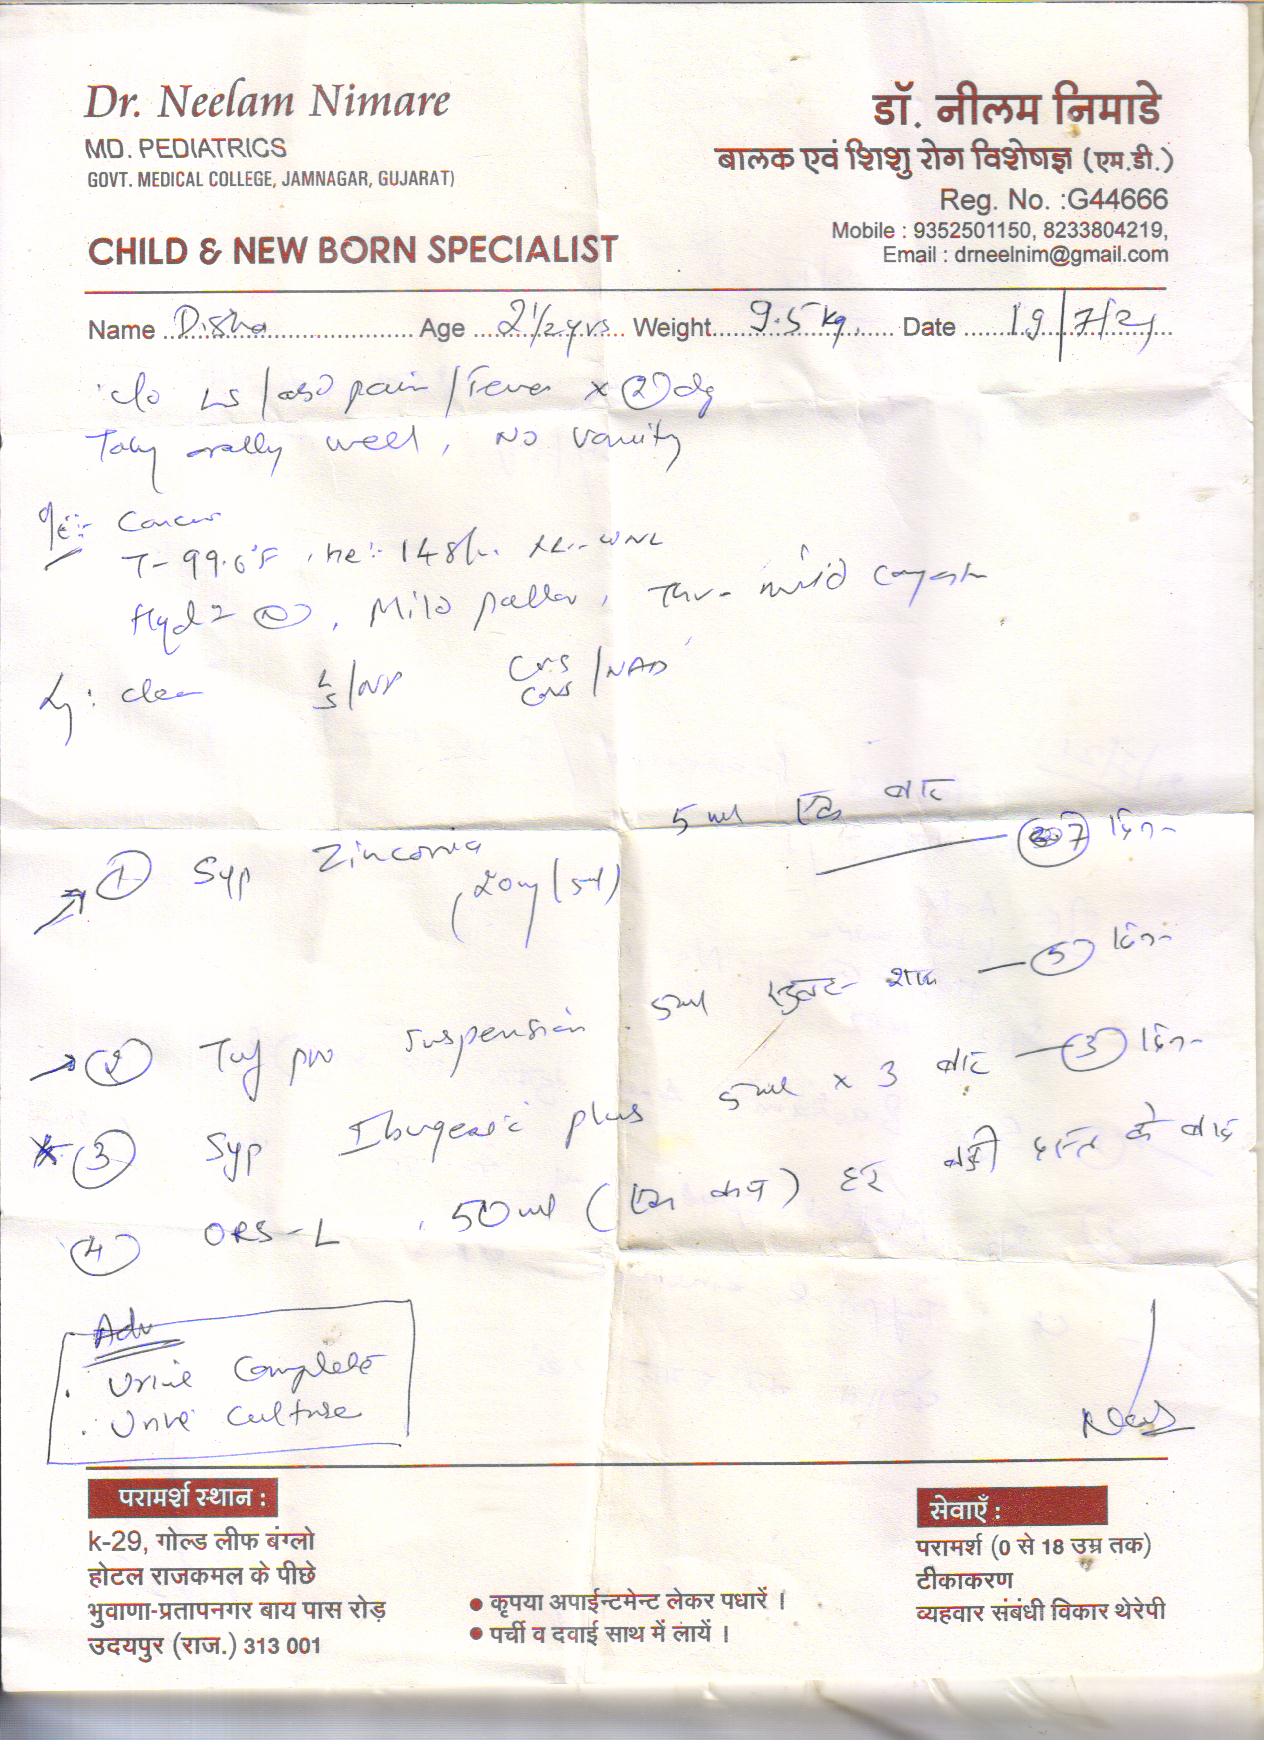 Dr. Neelam Nimare
MD. PEDIATRICS
GOVT. MEDICAL COLLEGE, JAMNAGAR, GUJARAT)
CHILD & NEW BORN SPECIALIST
डॉ. नीलम निमाडे
बालक एवं शिशु रोग विशेषज्ञ (एम.डी.)
Reg. No. :G44666
Mobile : 9352501150, 8233804219,
Email : drneelnim@gmail.com
Name Disha Age 2 1/2 yrs Weight 9.5 kg. Date 19/7/21
c/o LS / abd pain / Fever x 2 dy
orally well, No
O/E:-
T- 99.6°F, 148/ WNL
Hyd N, Mild pallor, Thr- mild
clear L/S / NP CVS CNS / NAD
5 ml एक बार
1 Syp Zinconia 7 दिन
(20mg/5ml)
2 suspension 5ml सुबह शाम - 5 दिन
3 Syp Ibugesic plus 5ml x 3 बार - 3 दिन
4 ORS-L, 50ml (एक कप) हर दस्त के बाद
Adv
. Urine Complete
. Urine Culture
परामर्श स्थान :
k-29, गोल्ड लीफ बंग्लो
होटल राजकमल के पीछे
भुवाणा-प्रतापनगर बाय पास रोड़
उदयपुर (राज.) 313 001
● कृपया अपाईन्टमेन्ट लेकर पधारें ।
● पर्ची व दवाई साथ में लायें ।
सेवाएँ :
परामर्श (0 से 18 उम्र तक)
टीकाकरण
व्यहवार संबंधी विकार थेरेपी